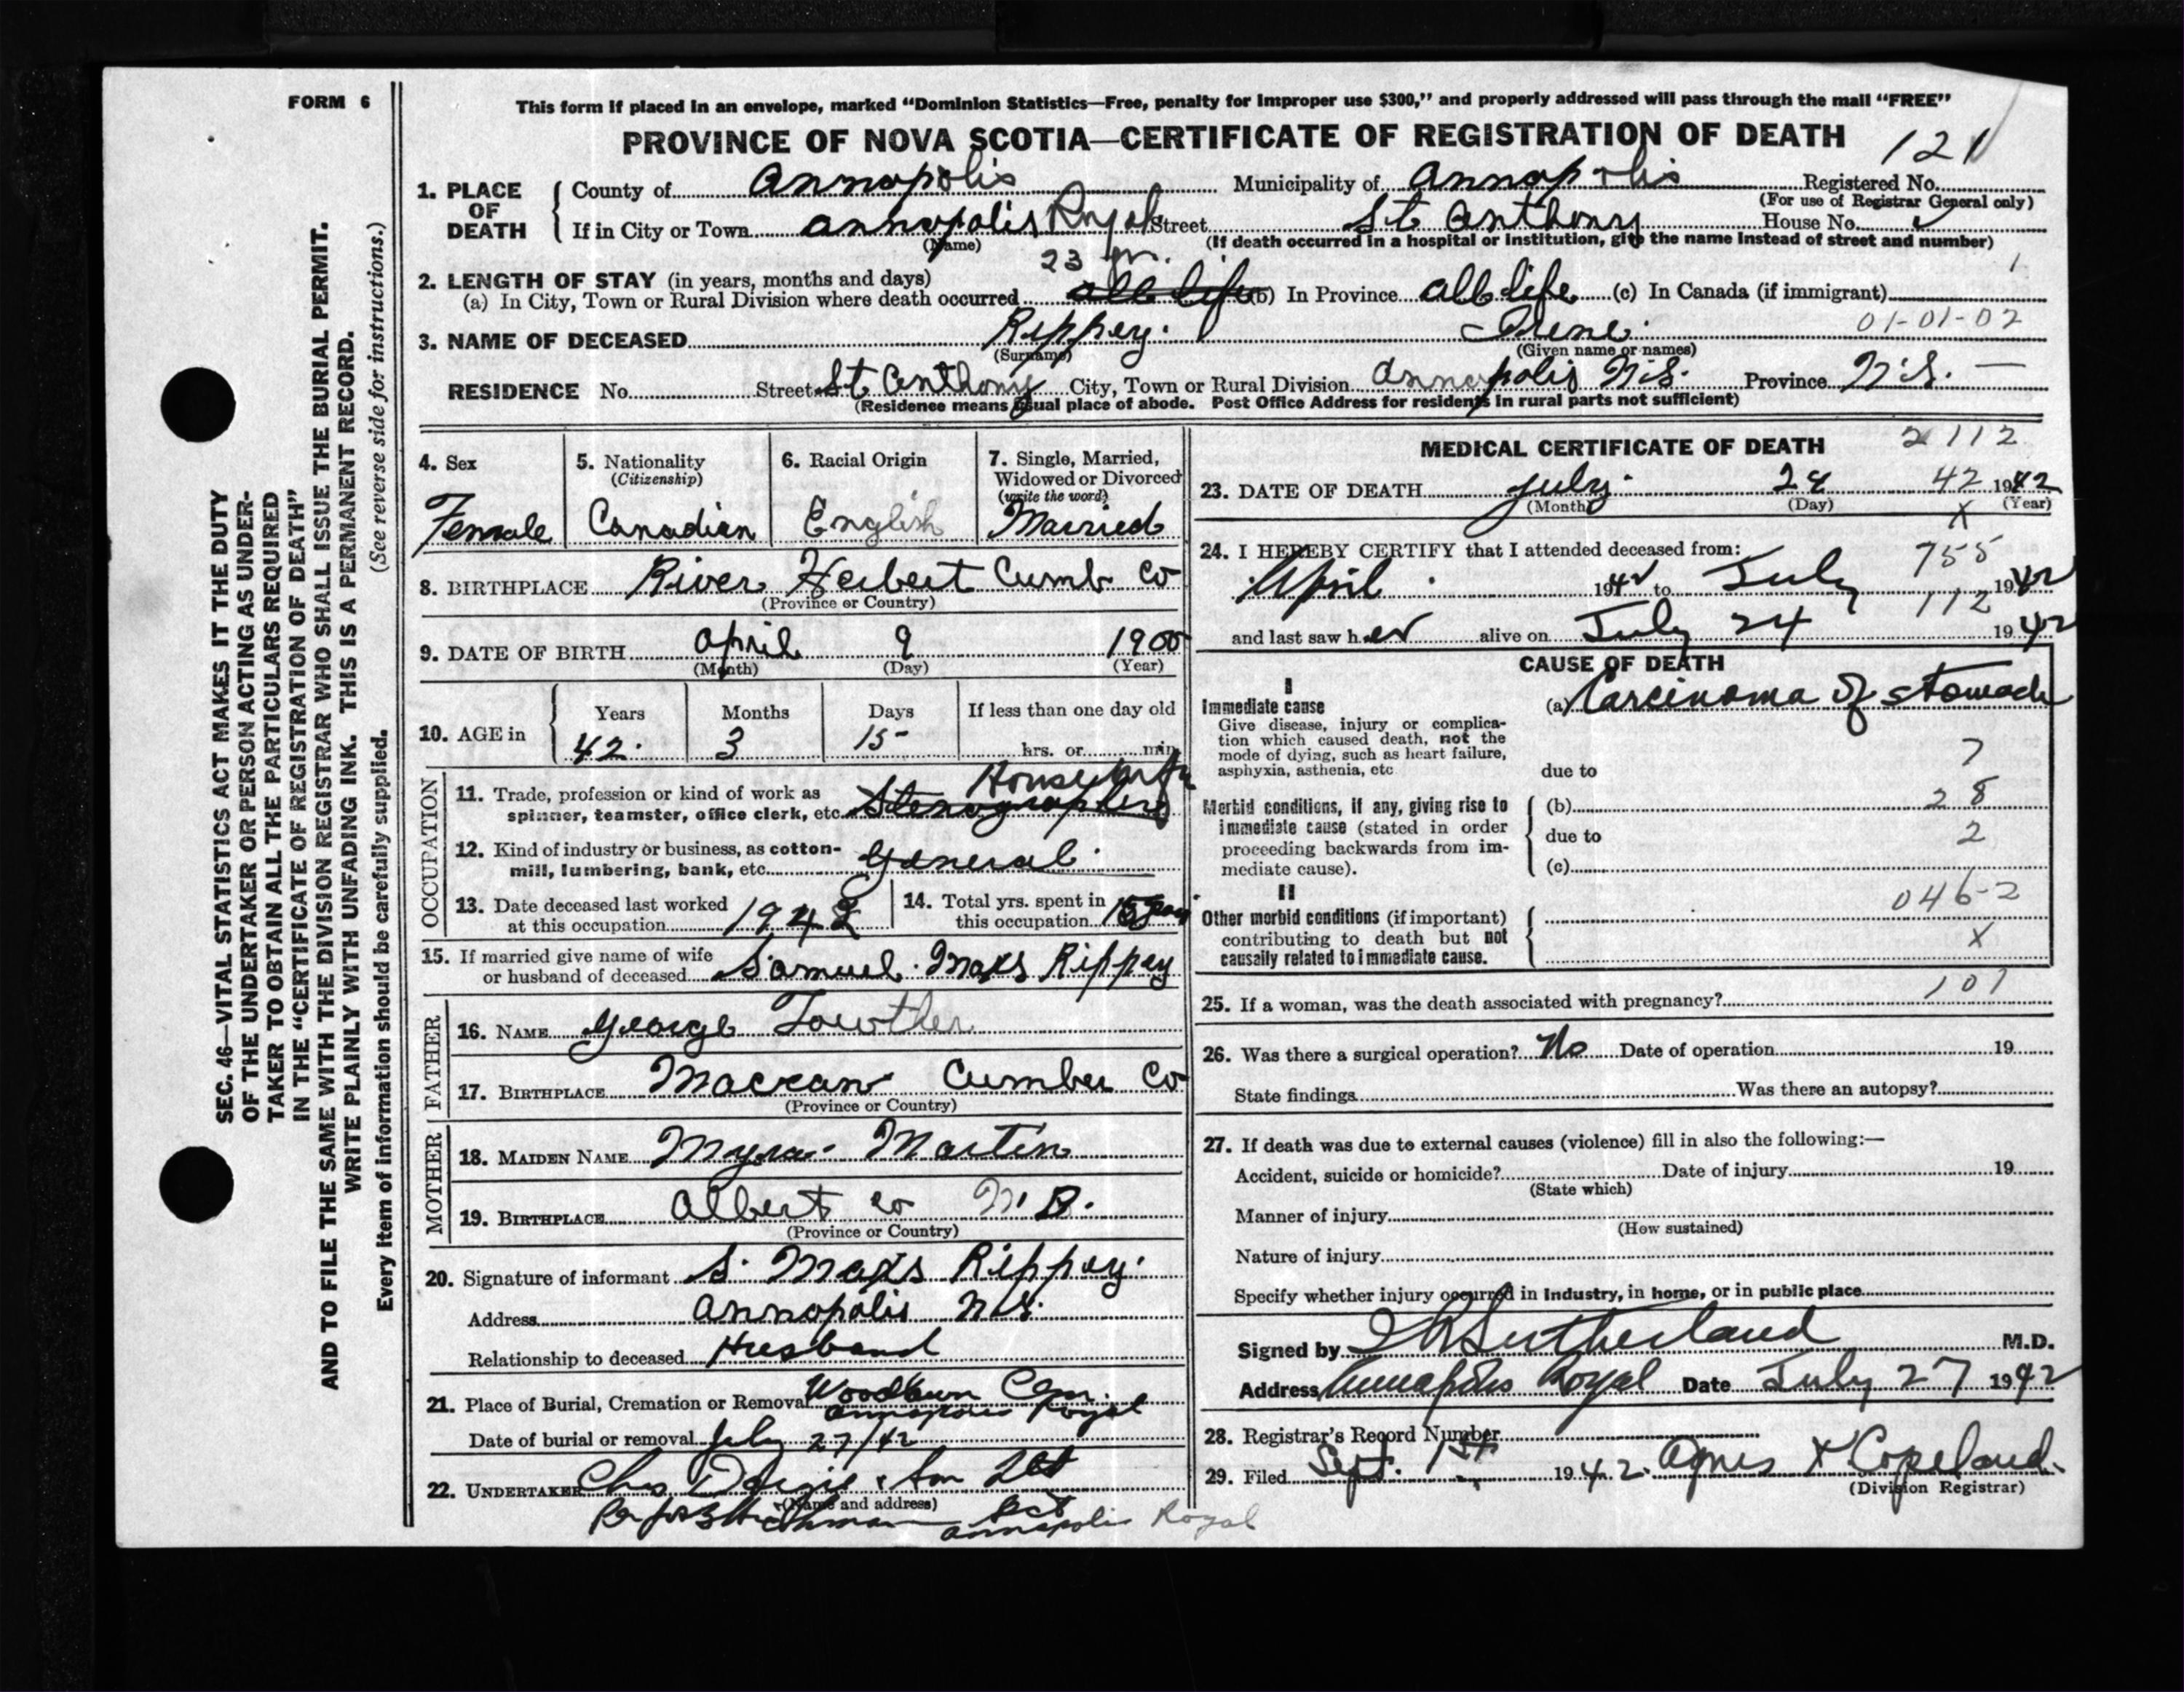 FORM 6
This form if placed in an envelope, marked “Dominion Statistics—Free, penalty for improper use $300,” and properly addressed will pass through the mail “FREE”
PROVINCE OF NOVA SCOTIA—CERTIFICATE OF REGISTRATION OF DEATH
121
1. PLACE OF DEATH
County of Annapolis Municipality of Annapolis Registered No.
(For use of Registrar General only)
If in City or Town Annapolis Royal Street St Anthony House No.
(Name)
(If death occurred in a hospital or institution, give the name instead of street and number)
23 yr.
1
2. LENGTH OF STAY (in years, months and days)
(a) In City, Town or Rural Division where death occurred all life (b) In Province all life (c) In Canada (if immigrant)
01-01-02
3. NAME OF DECEASED Rippey. Irene.
(Surname) (Given name or names)
RESIDENCE No. Street St Anthony City, Town or Rural Division Annapolis N.S. Province N.S. —
(Residence means usual place of abode. Post Office Address for residents in rural parts not sufficient)
4. Sex
Female
5. Nationality
(Citizenship)
Canadian
6. Racial Origin
English
7. Single, Married,
Widowed or Divorced
(write the word)
Married
8. BIRTHPLACE River Hebert Cumb Co
(Province or Country)
9. DATE OF BIRTH April 9 1900
(Month) (Day) (Year)
10. AGE in
Years Months Days If less than one day old
42 3 15 hrs. or min.
OCCUPATION
Housewife
11. Trade, profession or kind of work as
spinner, teamster, office clerk, etc. Stenographer
12. Kind of industry or business, as cotton-
mill, lumbering, bank, etc. General
13. Date deceased last worked
at this occupation 1942
14. Total yrs. spent in
this occupation
15. If married give name of wife
or husband of deceased Samuel Maxs Rippey
FATHER
16. NAME George Lowther
17. BIRTHPLACE Maccan Cumber Co
(Province or Country)
MOTHER
18. MAIDEN NAME Myra Martin
19. BIRTHPLACE Albert Co N.B.
(Province or Country)
20. Signature of informant S. Maxs Rippey.
Address Annapolis N.S.
Relationship to deceased Husband
21. Place of Burial, Cremation or Removal Woodlawn Cem.
Annapolis Royal
Date of burial or removal July 27/42
22. UNDERTAKER Chas & Son Ltd
(Name and address)
Per Annapolis Royal
MEDICAL CERTIFICATE OF DEATH
2112
23. DATE OF DEATH July 24 42 1942
(Month) (Day) (Year)
X
24. I HEREBY CERTIFY that I attended deceased from:
755
April 1942 to July 1942
112
and last saw her alive on July 24 1942
CAUSE OF DEATH
I
Immediate cause
Give disease, injury or complica-
tion which caused death, not the
mode of dying, such as heart failure,
asphyxia, asthenia, etc
(a) Carcinoma of stomach
7
due to
Morbid conditions, if any, giving rise to
immediate cause (stated in order
proceeding backwards from im-
mediate cause).
(b) 28
due to 2
(c)
II
Other morbid conditions (if important)
contributing to death but not
causally related to immediate cause.
046-2
X
101
25. If a woman, was the death associated with pregnancy?
26. Was there a surgical operation? No Date of operation 19
State findings Was there an autopsy?
27. If death was due to external causes (violence) fill in also the following:—
Accident, suicide or homicide? Date of injury 19
(State which)
Manner of injury
(How sustained)
Nature of injury
Specify whether injury occurred in industry, in home, or in public place
Signed by Sutherland M.D.
Address Annapolis Royal Date July 27 1942
28. Registrar's Record Number
29. Filed Sept. 1st 1942. Agnes Copeland.
(Division Registrar)
SEC. 46—VITAL STATISTICS ACT MAKES IT THE DUTY
OF THE UNDERTAKER OR PERSON ACTING AS UNDER-
TAKER TO OBTAIN ALL THE PARTICULARS REQUIRED
IN THE “CERTIFICATE OF REGISTRATION OF DEATH”
AND TO FILE THE SAME WITH THE DIVISION REGISTRAR WHO SHALL ISSUE THE BURIAL PERMIT.
WRITE PLAINLY WITH UNFADING INK. THIS IS A PERMANENT RECORD.
(See reverse side for instructions.)
Every item of information should be carefully supplied.